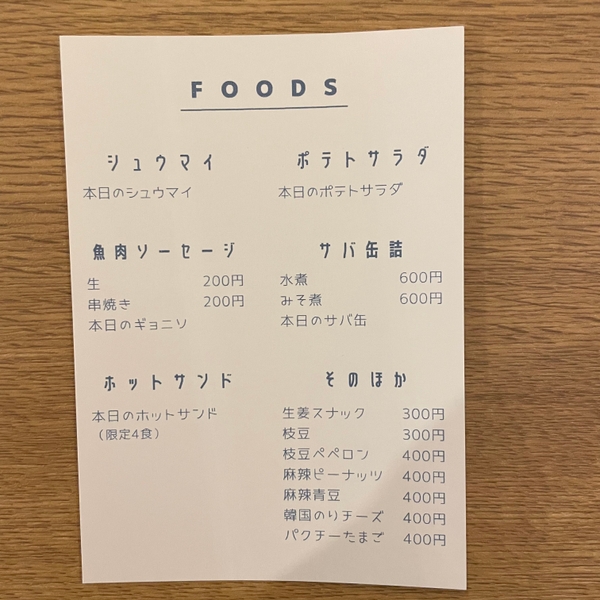 FOODS
シュウマイ
本日のシュウマイ
ポテトサラダ
本日のポテトサラダ
魚肉ソーセージ
生 200円
串焼き 200円
本日のギョニソ
サバ缶詰
水煮 600円
みそ煮 600円
本日のサバ缶
ホットサンド
本日のホットサンド
（限定4食）
そのほか
生姜スナック 300円
枝豆 300円
枝豆ペペロン 400円
麻辣ピーナッツ 400円
麻辣青豆 400円
韓国のりチーズ 400円
パクチーたまご 400円